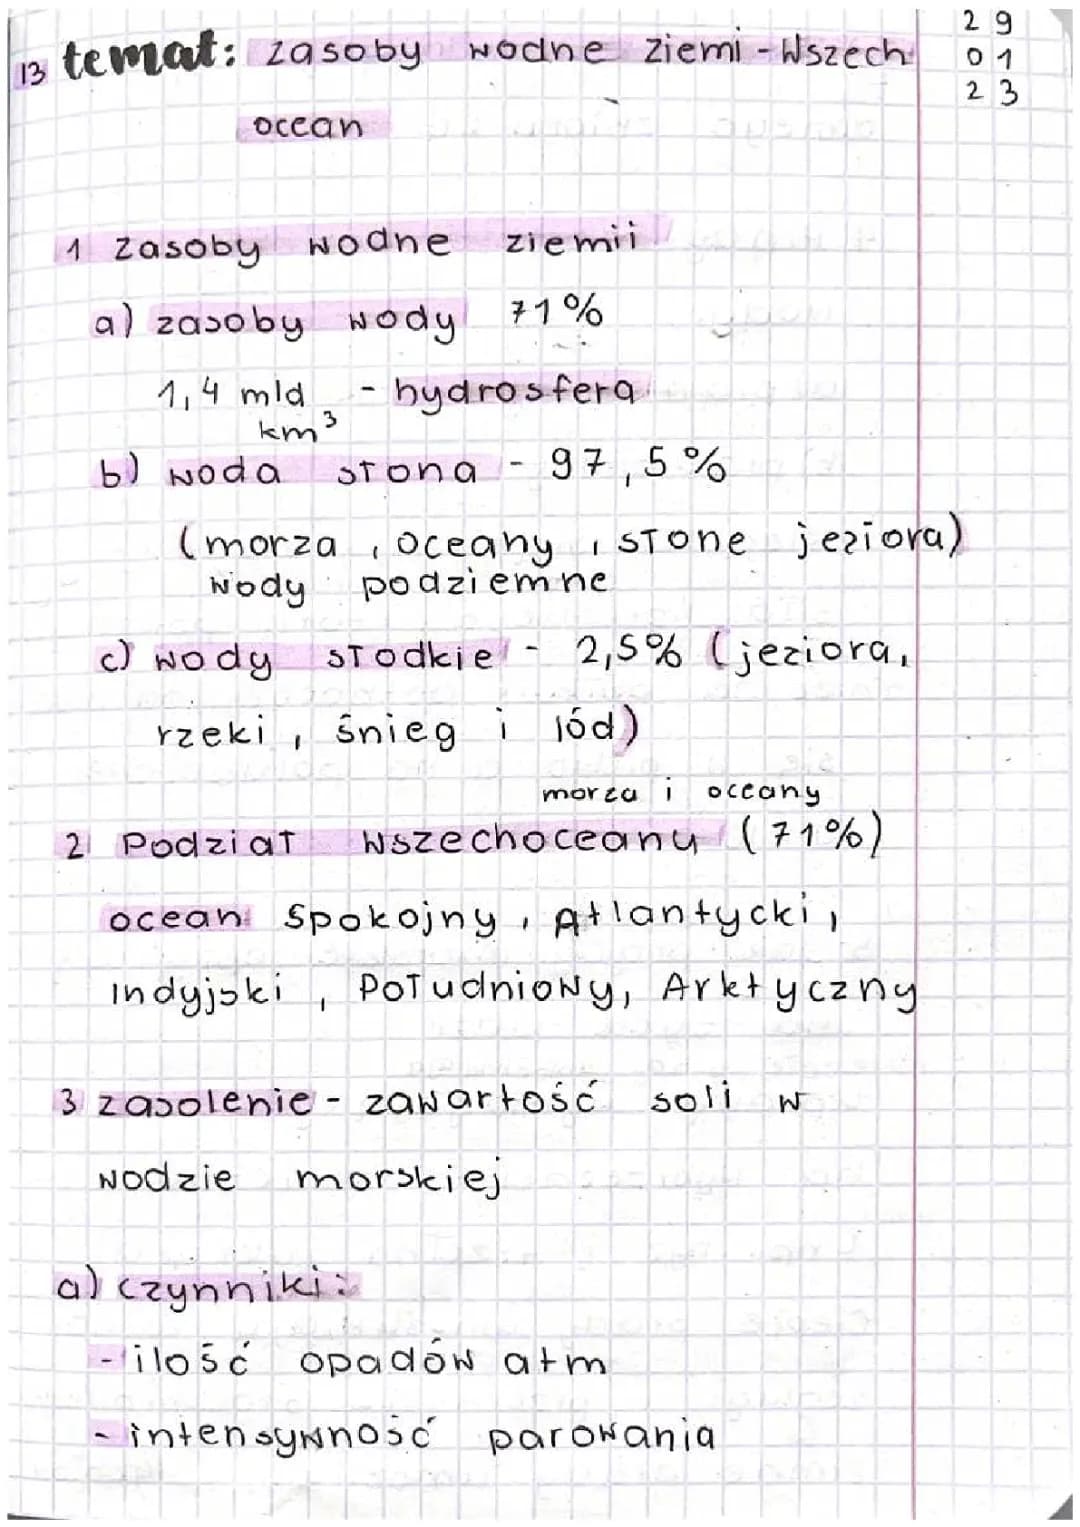 13 temat: zasoby wodne ziemi - Wszech
ocean
29
01
23
1 zasoby wodne ziemii
a) zasoby wody 71%
1,4 mld - hydrosfera
km³
b) woda słona - 97,5%
(morza, oceany, słone jeziora)
wody podziemne
c) wody słodkie - 2,5% (jeziora,
rzeki, śnieg i lód)
morza i oceany
2 Podział wszechoceanu (71%)
ocean Spokojny, Atlantycki,
Indyjski, Południowy, Arktyczny
3 zasolenie - zawartość soli w
wodzie morskiej
a) czynniki:
- ilość opadów atm
- intensywność parowania